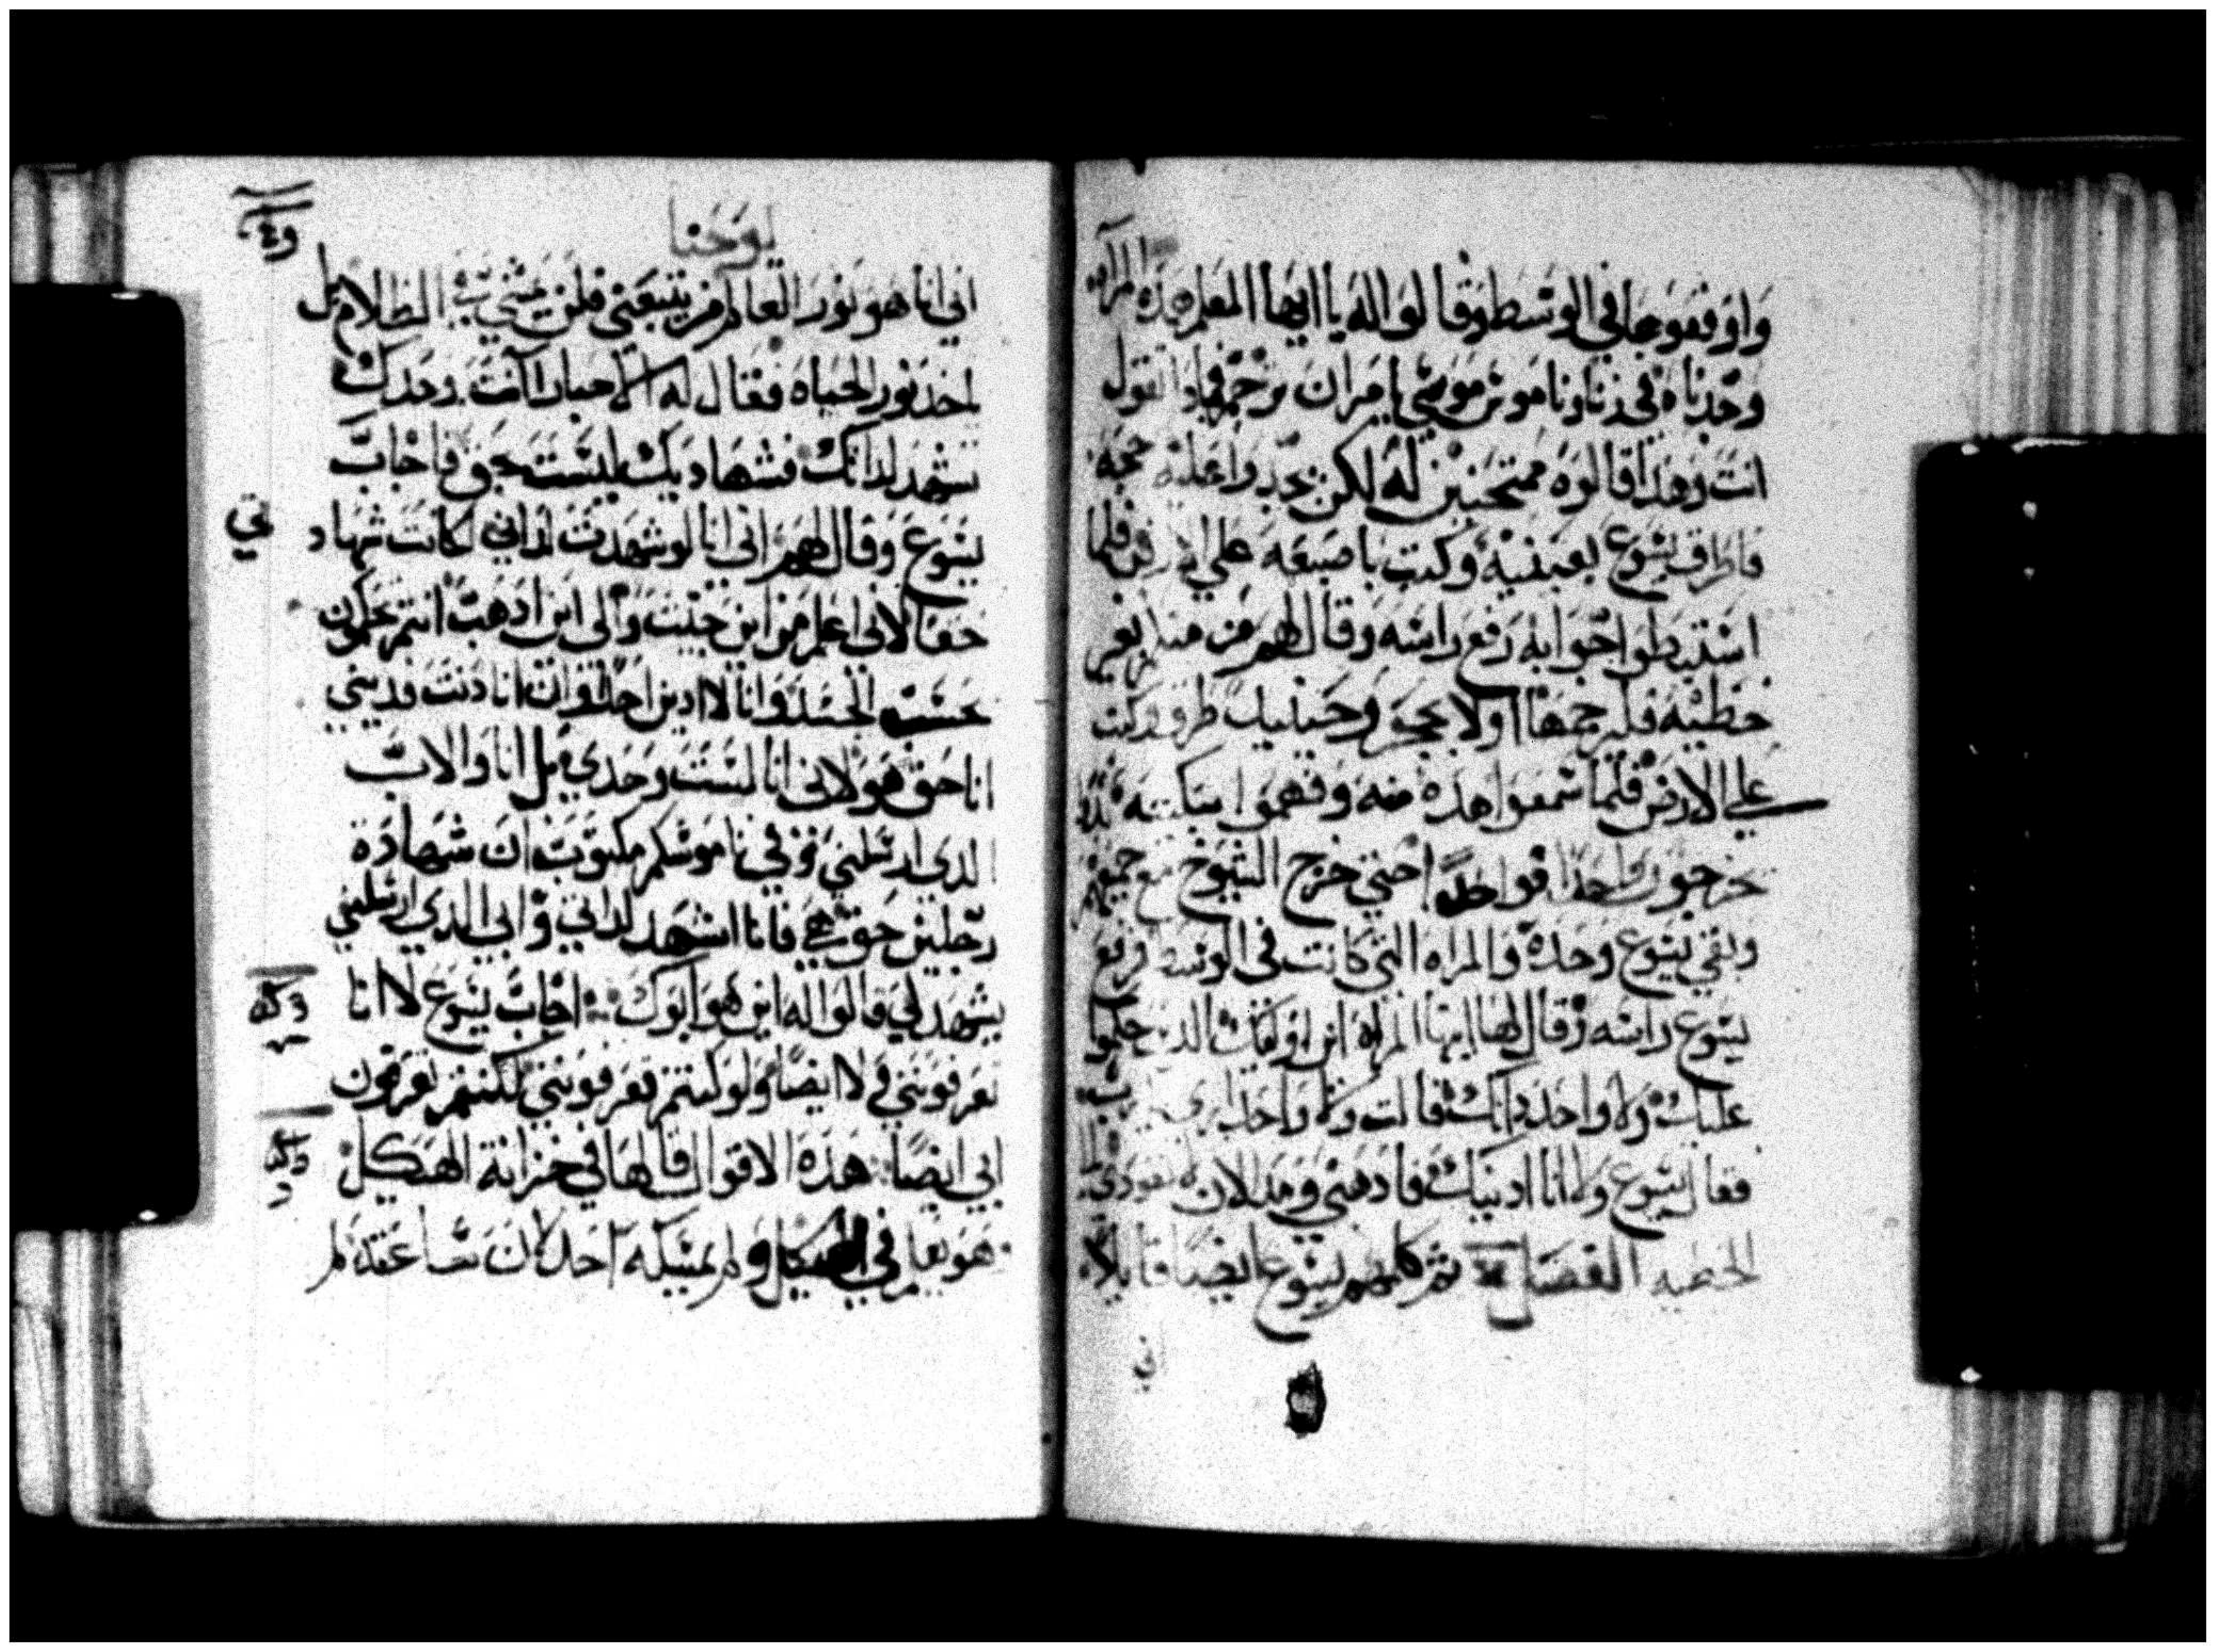 واوقفوها في الوسط وقالوا له يا ايها المعلم هذه المراه
وجدناه في زنا وناموس موسي يامر ان ترجم فماذا تقول
انت وهذا قالوه ممتحنين له لكن يجدوا عليه حجه
فاطرق يسوع بعينيه وكتب باصبعه علي الارض فلما
استبطوا جوابه رفع راسه وقال لهم من منكم بغير
خطيه فليرجمها اولا بحجر وحينيذ طرق وكتب
علي الارض فلما سمعوا هذه منه وفهموا سكتته
خرجون واحدا فواحدا حتي خرج الشيوخ مع جميعهم
وبقي يسوع وحده والمراه التي كانت في الوسط فرفع
يسوع راسه وقال لها ايتها المراه اين اوليك الذين حكموا
عليك ولا واحد دانك قالت ولا واحد يا رب
فقال يسوع ولا انا ادينك فاذهبي ومن الان لا تعودي الي
الخطيه الفصل ثم كلمهم يسوع ايضا قايلا
اني
يوحنا
اني انا هو نور العالم من يتبعني فلن يمشي في الظلام بل
ياخد نور الحياه فقال له الاحبار انت وحدك
تشهد لداتك فشهادتك ليست بحق فاجاب
يسوع وقال لهم اني انا لو شهدت لداتي لكانت شهاد
تي
حقا لاني اعلم من اين جيت والي اين ادهب انتم تحكمون
بحسب الجسد وانا لا ادين احدا وان انا دنت فديني
انا حق هو لاني انا لست وحدي بل انا والاب
الدي ارسلني وفي ناموسكم مكتوب ان شهادة
رجلين حق هي فانا اشهد لداتي وابي الدي ارسلني
يشهد لي قالوا له اين هو ابوك اجاب يسوع لا انا
تعرفونني في لا ايضا ولو كنتم تعرفونني لكنتم تعرفون
ابي ايضا هذه الاقوال قالها في خزانة الهيكل
هو يعلم في الهيكل ولم يمسكه احد لان ساعته لم